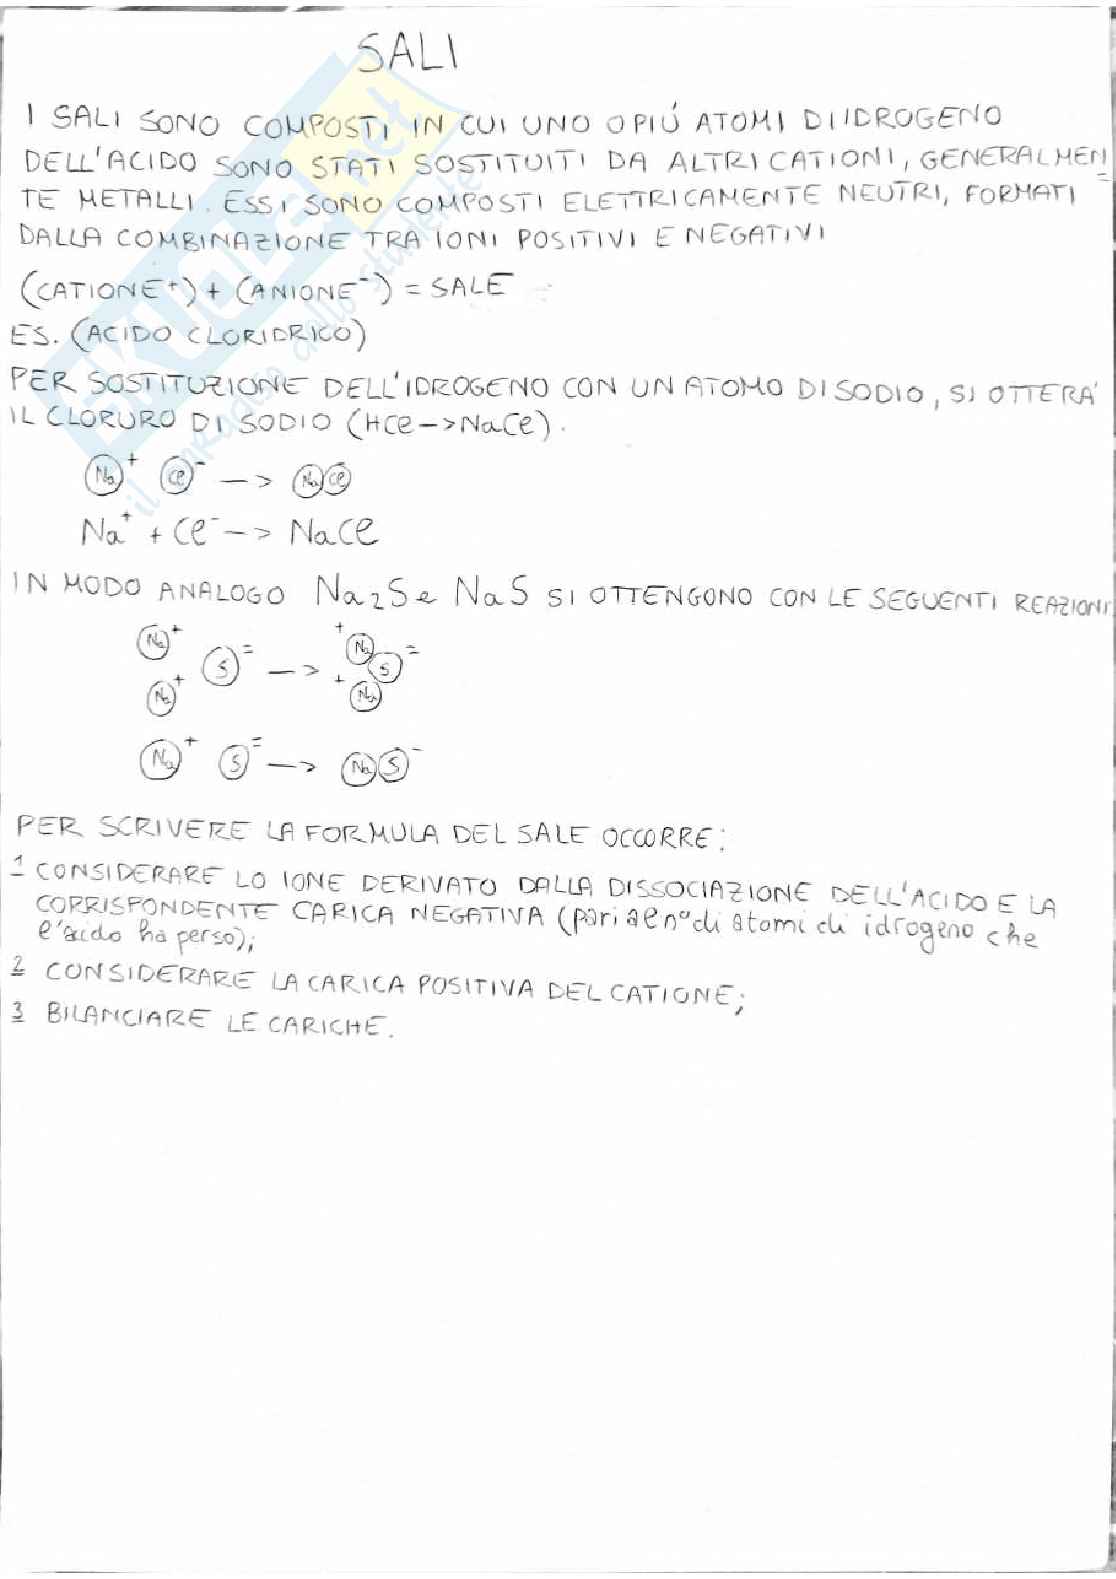 SALI
I SALI SONO COMPOSTI IN CUI UNO O PIÚ ATOMI DI IDROGENO
DELL'ACIDO SONO STATI SOSTITUITI DA ALTRI CATIONI, GENERALMEN
TE METALLI. ESSI SONO COMPOSTI ELETTRICAMENTE NEUTRI, FORMATI
DALLA COMBINAZIONE TRA IONI POSITIVI E NEGATIVI
(CATIONE⁺) + (ANIONE⁻) = SALE
ES. (ACIDO CLORIDRICO)
PER SOSTITUZIONE DELL'IDROGENO CON UN ATOMO DI SODIO, SI OTTERA'
IL CLORURO DI SODIO (HCl -> NaCl).
Na⁺ Cl⁻ -> Na Cl
Na⁺ + Cl⁻ -> NaCl
IN MODO ANALOGO Na₂S e NaS SI OTTENGONO CON LE SEGUENTI REAZIONI
Na⁺ + Na =
S = -> S
Na⁺ + Na
Na⁺ S = -> Na S⁻
PER SCRIVERE LA FORMULA DEL SALE OCCORRE:
1 CONSIDERARE LO IONE DERIVATO DALLA DISSOCIAZIONE DELL'ACIDO E LA
CORRISPONDENTE CARICA NEGATIVA (pari al n° di atomi di idrogeno che
l'acido ha perso);
2 CONSIDERARE LA CARICA POSITIVA DEL CATIONE;
3 BILANCIARE LE CARICHE.
skuola.net
il paradiso dello studente